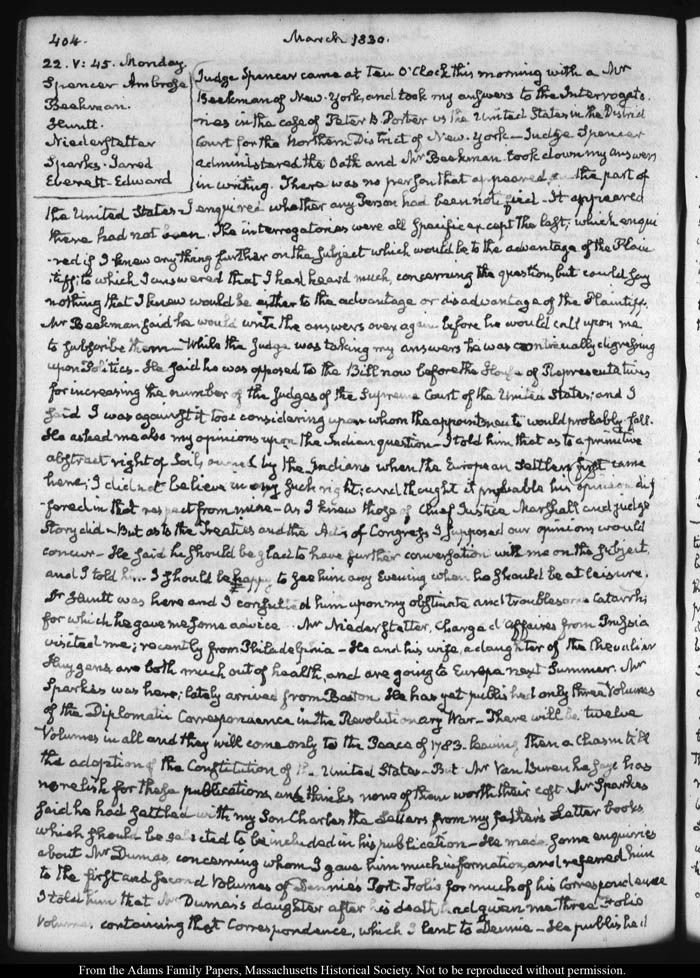 404.
March 1830.
22. V: 45. Monday.
Spencer Ambrose
Beekman.
Huntt.
Niederstetter
Sparks. Jared
Everett-Edward
Judge Spencer came at Ten O'Clock this morning with a Mr
Beekman of New-York, and took my answers to the Interrogato-
ries in the case of Peter B. Porter vs the United States in the District
Court for the Northern District of New-York—Judge Spencer
administered the Oath and Mr Beekman took down my answers
in writing. There was no person that appeared on the part of
the United States—I enquired whether any Person had been notified—It appeared
there had not been. The interrogatories were all specific except the last; which enqui
-red if I knew any thing further on the subject which would be to the advantage of the Plain
tiff; to which I answered that I had heard much, concerning the question, but could say
nothing that I knew would be either to the advantage or disadvantage of the Plaintiff.
Mr Beekman said he would write the answers over again before he would call upon me
to subscribe them—While the Judge was taking my answers he was continually digressing
upon Politics—He said he was opposed to the Bill now before the House of Representatives
for increasing the number of the Judges of the Supreme Court of the United States; and I
said I was against it too: considering upon whom the appointments would probably fall.
He asked me also my opinions upon the Indian question—I told him that as to a primitive
abstract right of Soil, owned by the Indians when the European settlers first came
here; I did not believe in any such right; and thought it probable his opinion dif
fered in that respect from mine—As I knew those of Chief Justice Marshall and Judge
Story did—But as to the Treaties and the Acts of Congress I supposed our opinions would
concur—He said he should be glad to have further conversation with me on the subject.
and I told him I should be happy to see him any Evening when he should be at leisure.
Dr Huntt was here and I consulted him upon my obstinate and troublesome Catarrh;
for which he gave me some advice. Mr Niederstetter, Chargé d'Affaires from Prussia
visited me; recently from Philadelphia—He and his wife, a daughter of the Chevalier
Huygens are both much out of health, and are going to Europe next Summer. Mr
Sparks was here; lately arrived from Boston. He has yet published only three Volumes
of the Diplomatic Correspondence in the Revolutionary War—There will be twelve
Volumes in all and they will come only to the Peace of 1783. leaving then a Chasm till
the adoption of the Constitution of the United States—But Mr Van Buren he says has
no relish for these publications, and thinks none of them worth their cost. Mr Sparks
said he had settled with my Son Charles the Letters from my father's Letter books
which should be selected to be included in his publication—He made some enquiries
about Mr Dumas, concerning whom I gave him much information, and referred him
to the first and second Volumes of Dennie's Port-Folio for much of his Correspondence
I told him that Mr Dumas's daughter after his death had given me three Folio
Volumes containing that Correspondence, which I lent to Dennie—He published
From the Adams Family Papers, Massachusetts Historical Society. Not to be reproduced without permission.